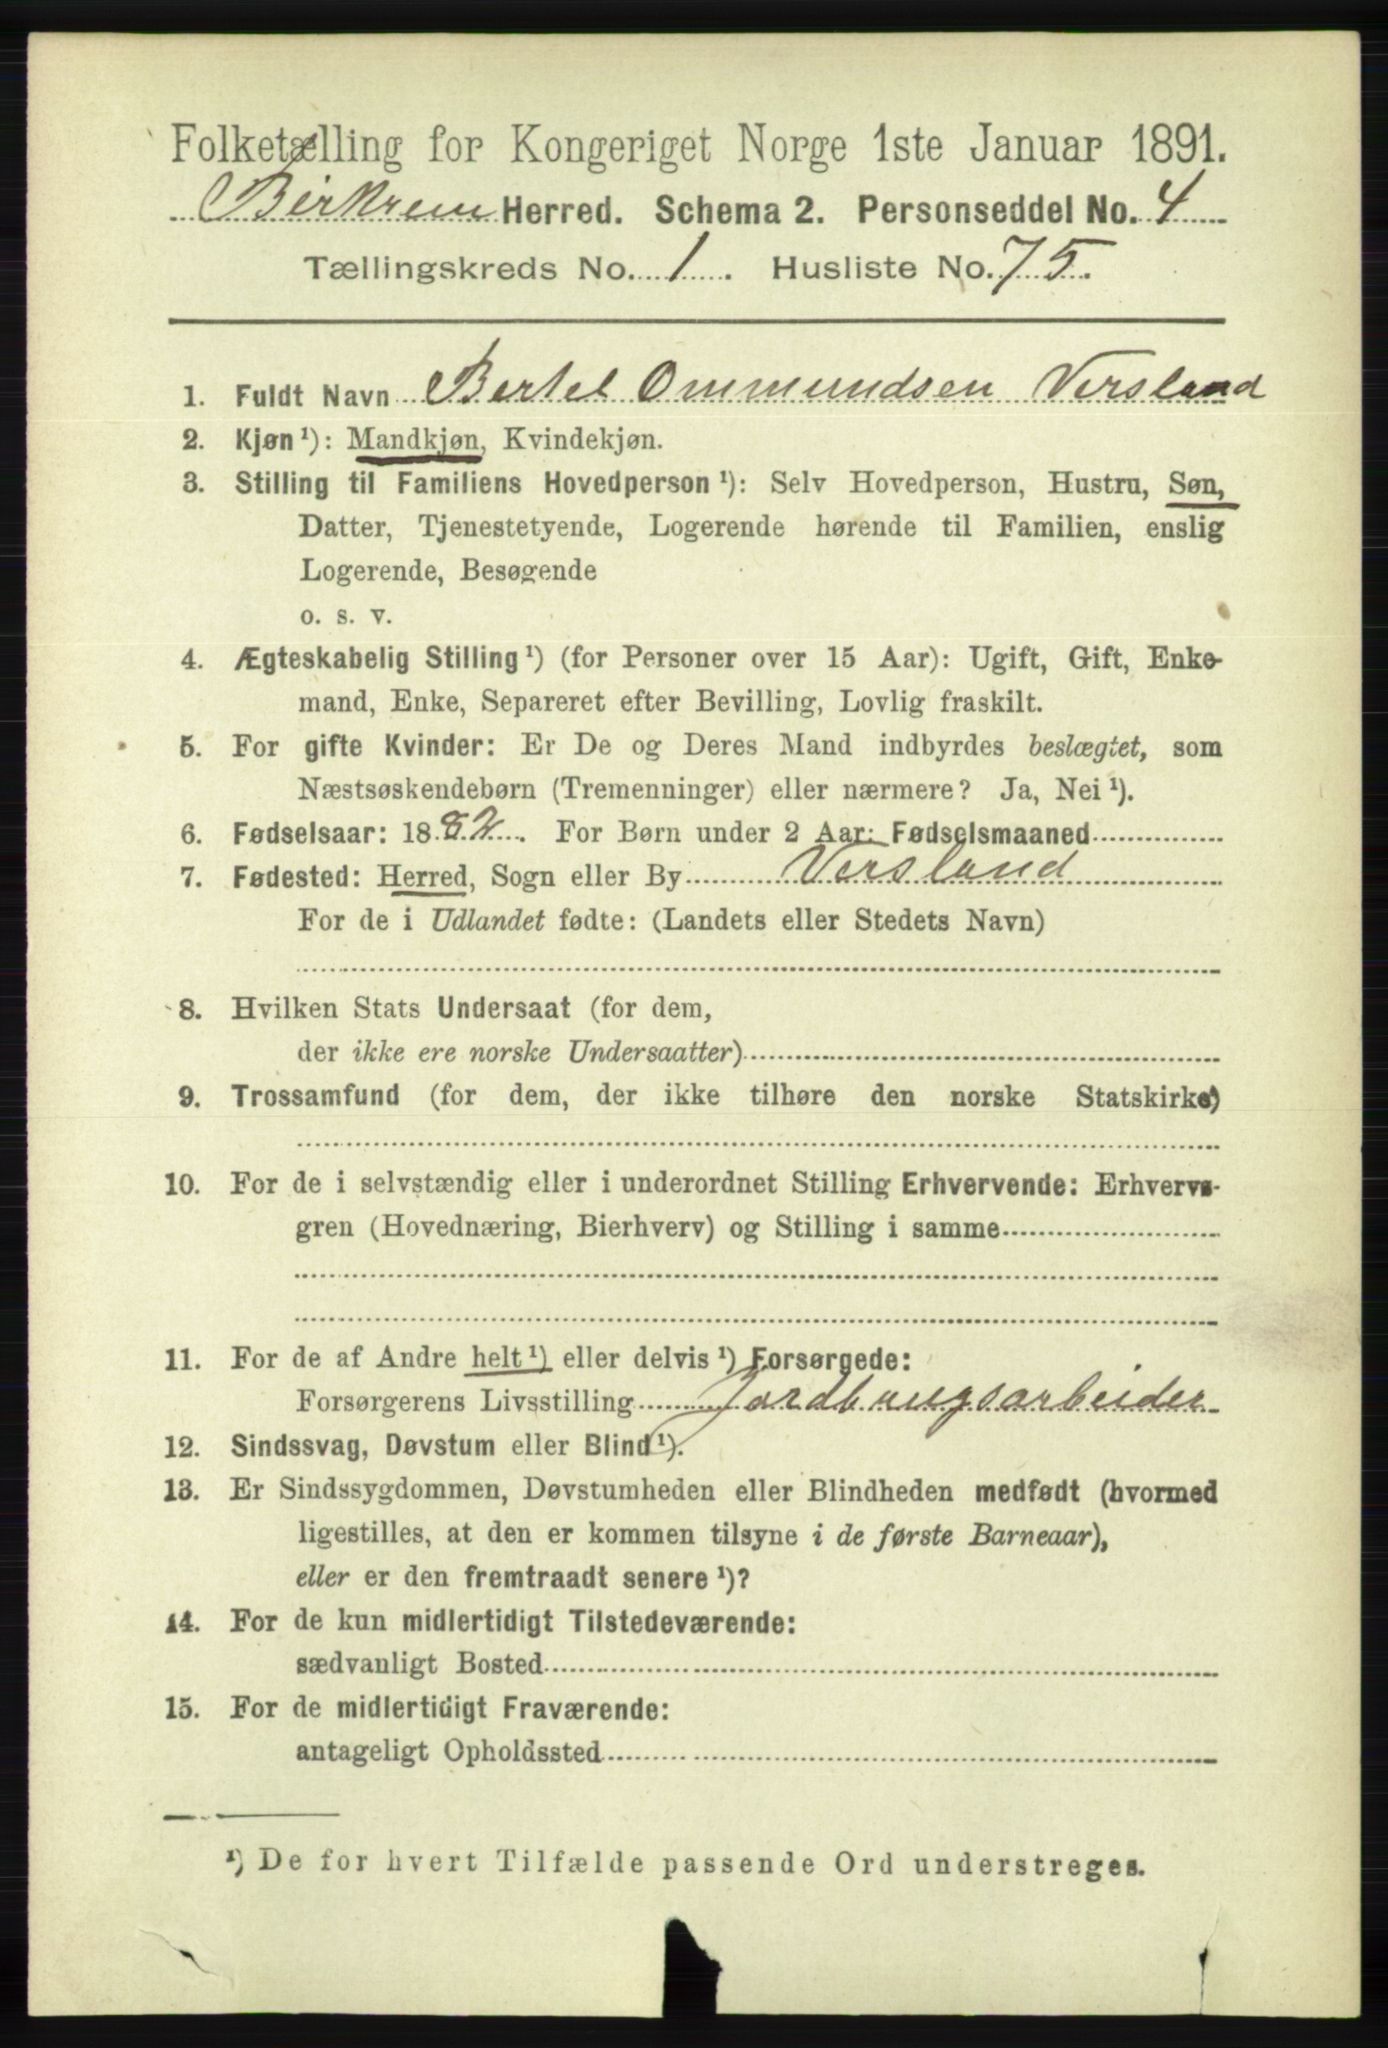 Folketælling for Kongeriget Norge 1ste Januar 1891.
Birkrem Herred. Schema 2. Personseddel No. 4
Tællingskreds No. 1. Husliste No. 75.
1. Fuldt Navn Bertel Ommundsen Versland
2. Kjøn ¹): Mandkjøn, Kvindekjøn.
3. Stilling til Familiens Hovedperson ¹): Selv Hovedperson, Hustru, Søn,
Datter, Tjenestetyende, Logerende hørende til Familien, enslig
Logerende, Besøgende
o. s. v.
4. Ægteskabelig Stilling ¹) (for Personer over 15 Aar): Ugift, Gift, Enke-
mand, Enke, Separeret efter Bevilling, Lovlig fraskilt.
5. For gifte Kvinder: Er De og Deres Mand indbyrdes beslægtet, som
Næstsøskendebørn (Tremenninger) eller nærmere? Ja, Nei ¹).
6. Fødselsaar: 1882. For Børn under 2 Aar: Fødselsmaaned
7. Fødested: Herred, Sogn eller By Versland
For de i Udlandet fødte: (Landets eller Stedets Navn)
8. Hvilken Stats Undersaat (for dem,
der ikke ere norske Undersaatter)
9. Trossamfund (for dem, der ikke tilhøre den norske Statskirke)
10. For de i selvstændig eller i underordnet Stilling Erhvervende: Erhvervs-
gren (Hovednæring, Bierhverv) og Stilling i samme
11. For de af Andre helt ¹) eller delvis ¹) Forsørgede:
Forsørgerens Livsstilling Jordbrugsarbeider
12. Sindssvag, Døvstum eller Blind ¹).
13. Er Sindssygdommen, Døvstumheden eller Blindheden medfødt (hvormed
ligestilles, at den er kommen tilsyne i de første Barneaar),
eller er den fremtraadt senere ¹)?
14. For de kun midlertidigt Tilstedeværende:
sædvanligt Bosted
15. For de midlertidigt Fraværende:
antageligt Opholdssted
¹) De for hvert Tilfælde passende Ord understreges.